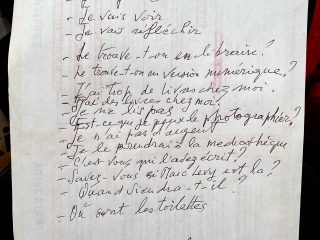 - Je vais voir
- Je vais réfléchir
- Le trouve-t-on en librairie?
- Le trouve-t-on en version numérique?
- J'ai trop de livres chez moi.
- J'ai des livres chez moi.
- Je ne lis pas
- Est-ce que je peux le photographier?
- Je n'ai pas d'argent
- Je le prendrai à la médiathèque
- C'est vous qui l'avez écrit?
- Savez-vous si Marc Levy est là?
- Quand viendra-t-il?
- Où sont les toilettes